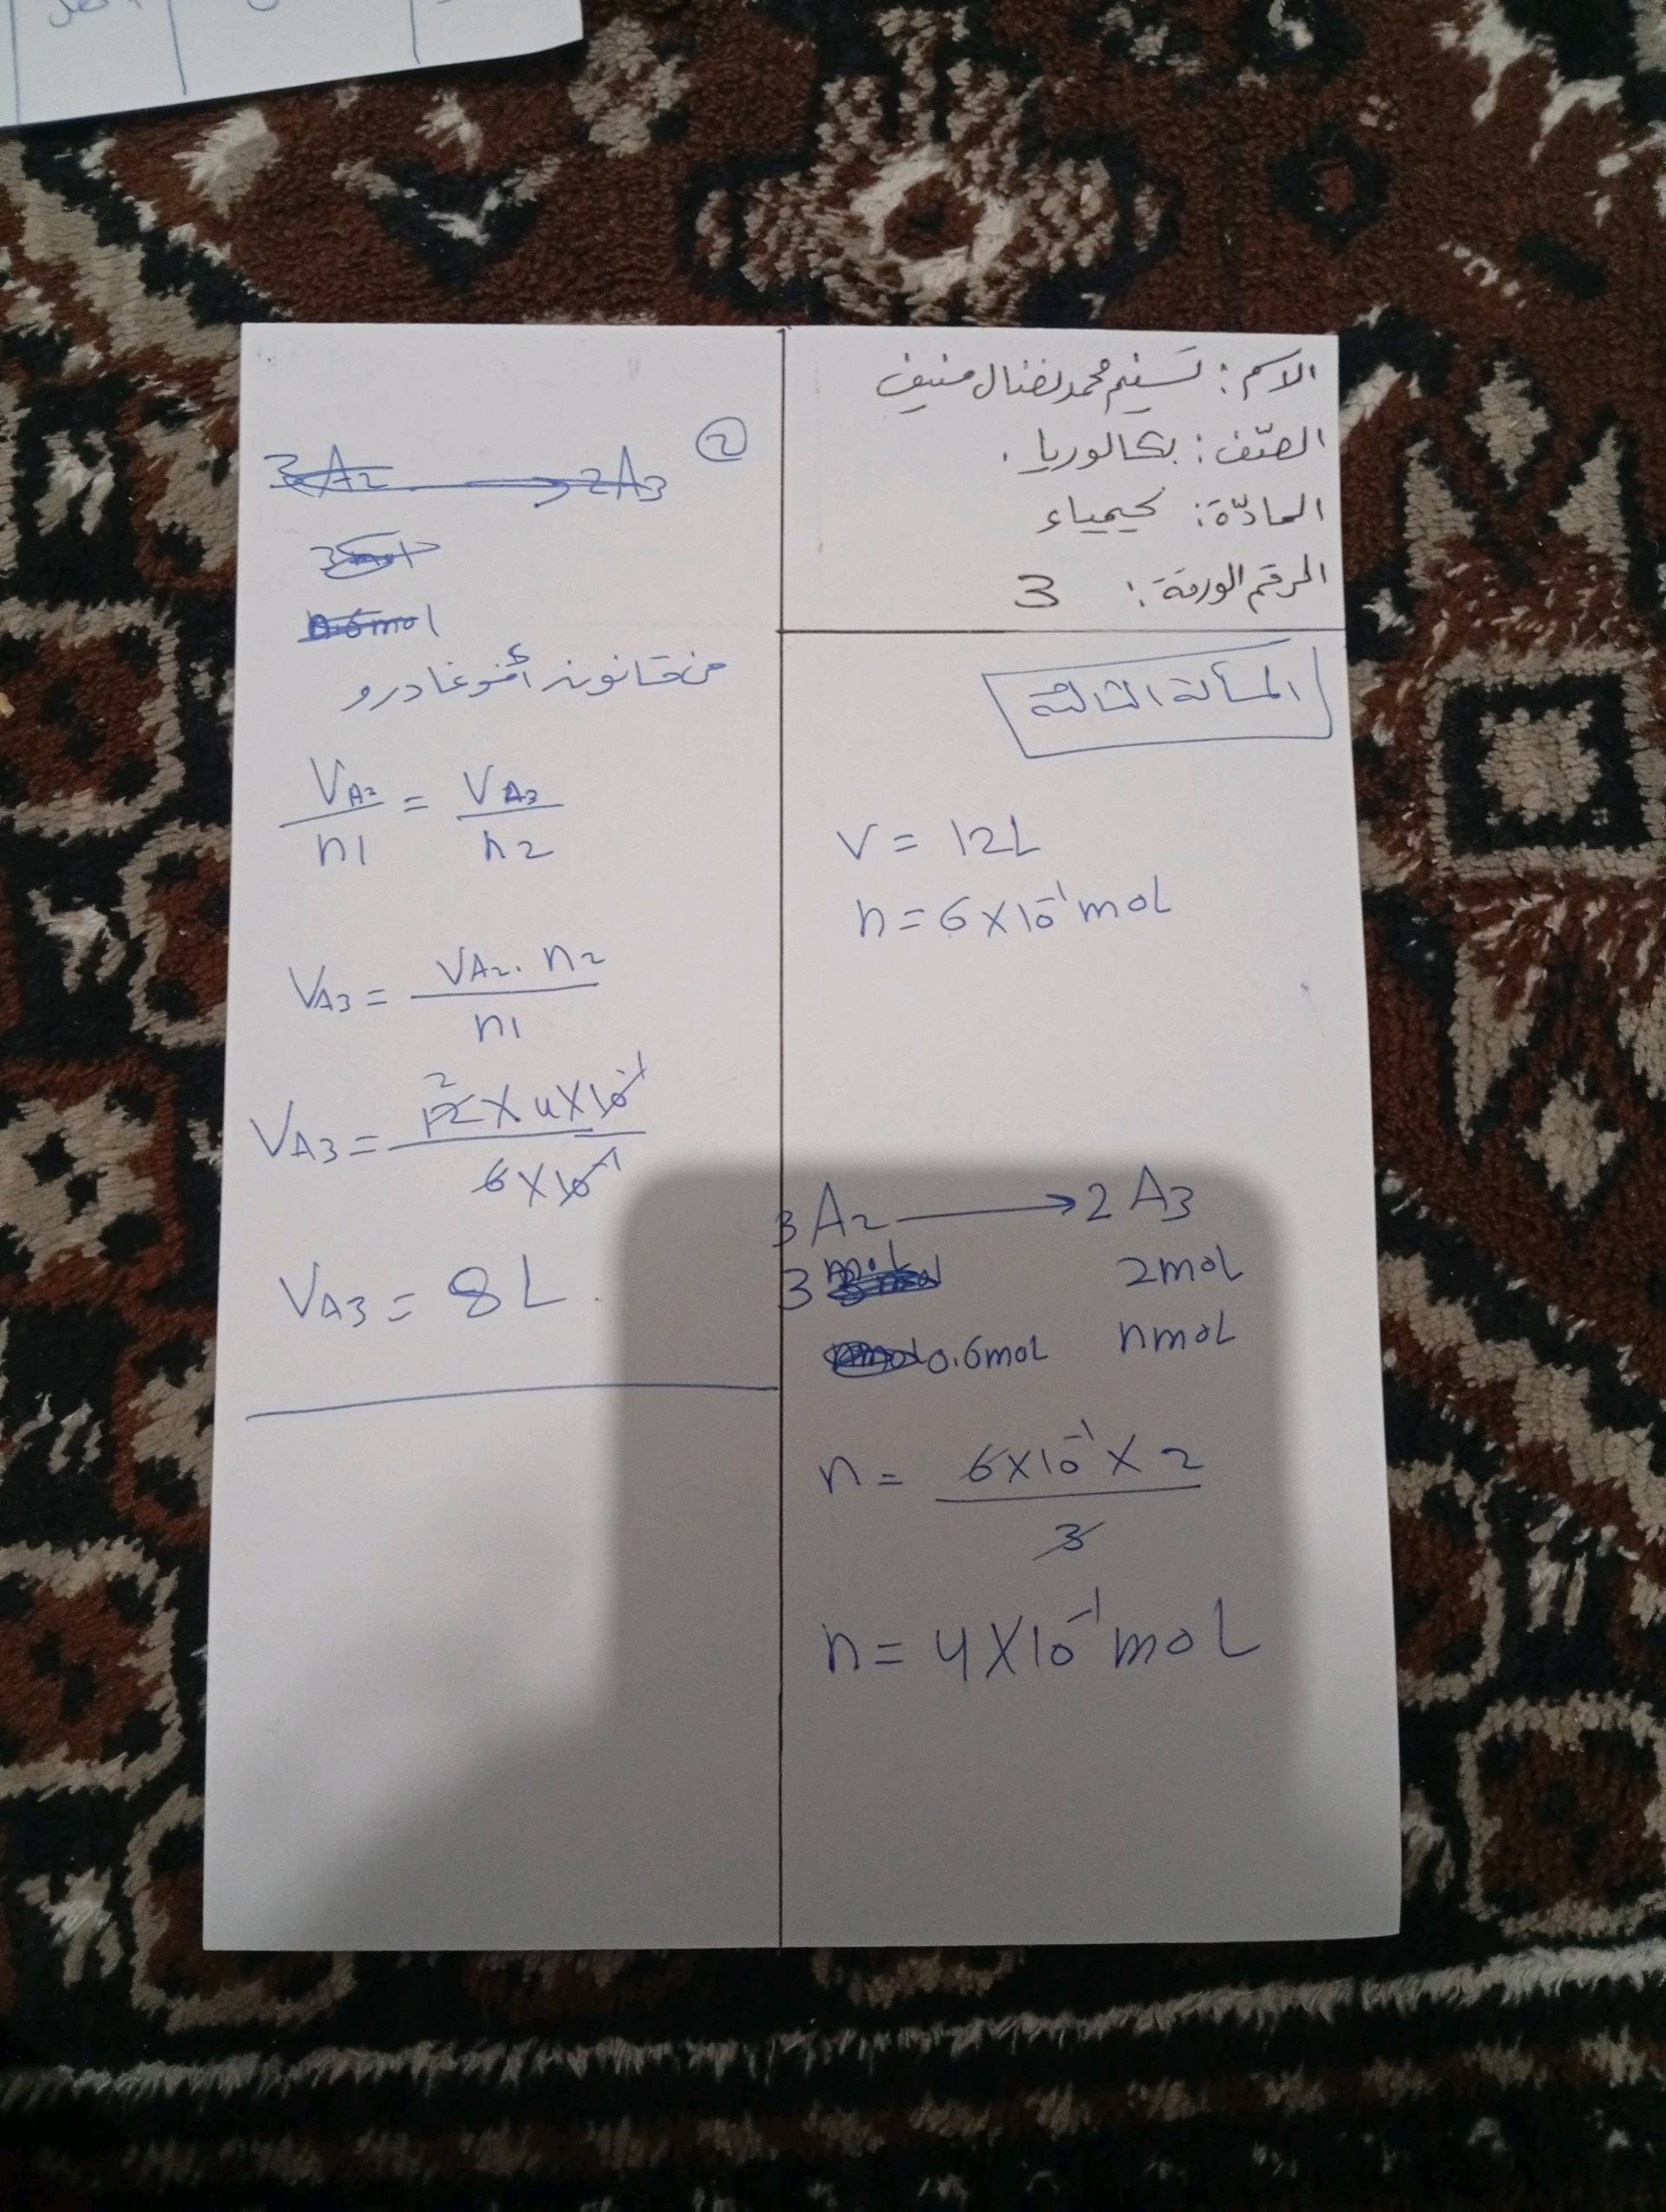 الاسم: تسنيم محمد نضال منيف
الصّف: بكالوريا.
المادّة: كيمياء
الرقم الورقة: 3
المسألة الثالثة
V = 12L
n = 6×10⁻¹ mol
3A₂ → 2A₃
3 mol 2mol
0.6mol nmol
n = 6×10⁻¹ × 2 / 3
n = 4×10⁻¹ mol
②
3A₂ → 2A₃
من قانون أفوغادرو
V A₂ / n1 = V A₃ / n2
V A₃ = V A₂ . n2 / n1
V A₃ = 12 × 4×10⁻¹ / 6×10⁻¹
2
V A₃ = 8L.